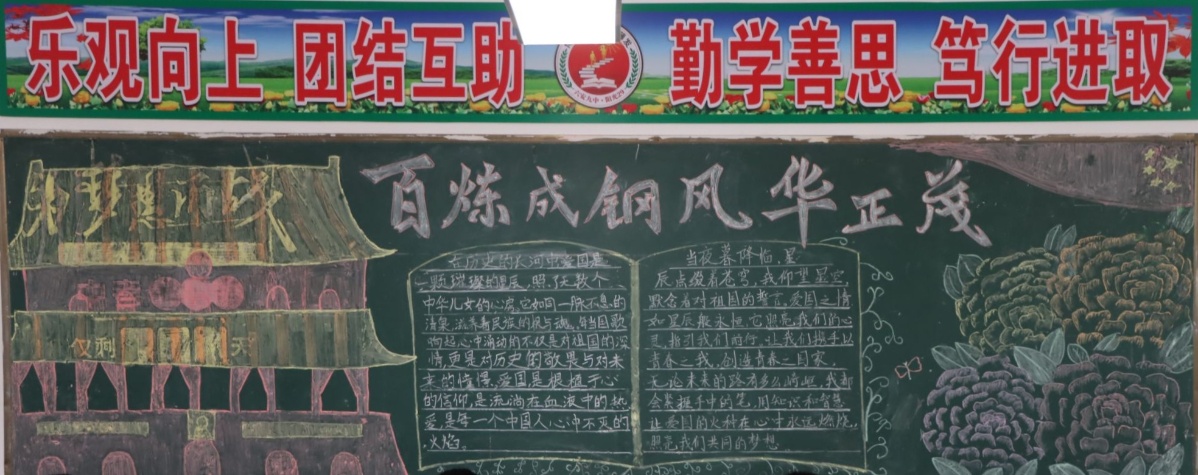 乐观向上 团结互助 勤学善思 笃行进取
百炼成钢风华正茂
在历史的长河中爱国是
一颗璀璨的星辰,照了无数个
中华儿女的心房,它如同一脉不息的
清泉
当国歌
响起心中涌动的不仅是对祖国的深
情更是对历史的敬畏与对未
来的憧憬,爱国是根植于心
的信仰,是流淌在血液中的热
爱,是每一个中国人心中不灭的
火焰。
当夜幕降临,星
辰点缀着苍穹,我仰望星空,
默念着对祖国的誓言,爱国之情
如星辰般永恒它照亮我们的心
灵,指引我们前行,让我们携手以
青春之我,创造青春之国家
无论未来的路有多么崎岖,我都
会紧握手中的笔,用知识和智慧,
让爱国的火种在心中永远燃烧,
照亮我们共同的梦想